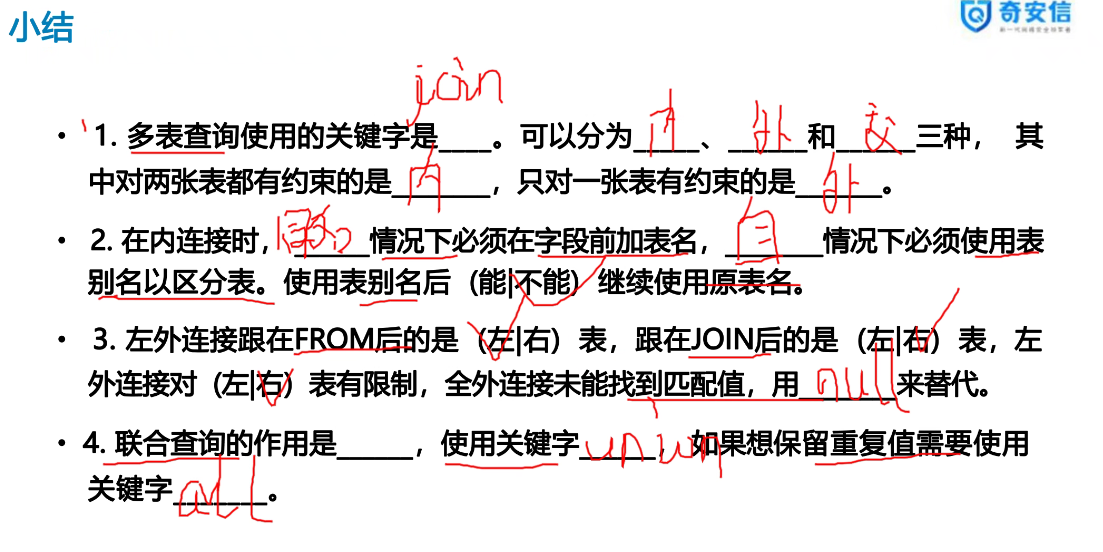 小结
奇安信
新一代网络安全领军者
join
• 1. 多表查询使用的关键字是____。可以分为内、外和交三种， 其
中对两张表都有约束的是内，只对一张表有约束的是外。
• 2. 在内连接时，____情况下必须在字段前加表名，自情况下必须使用表
别名以区分表。使用表别名后（能|不能）继续使用原表名。
• 3. 左外连接跟在FROM后的是（左|右）表，跟在JOIN后的是（左|右）表，左
外连接对（左|右）表有限制，全外连接未能找到匹配值，用null来替代。
• 4. 联合查询的作用是____，使用关键字union，如果想保留重复值需要使用
关键字all。